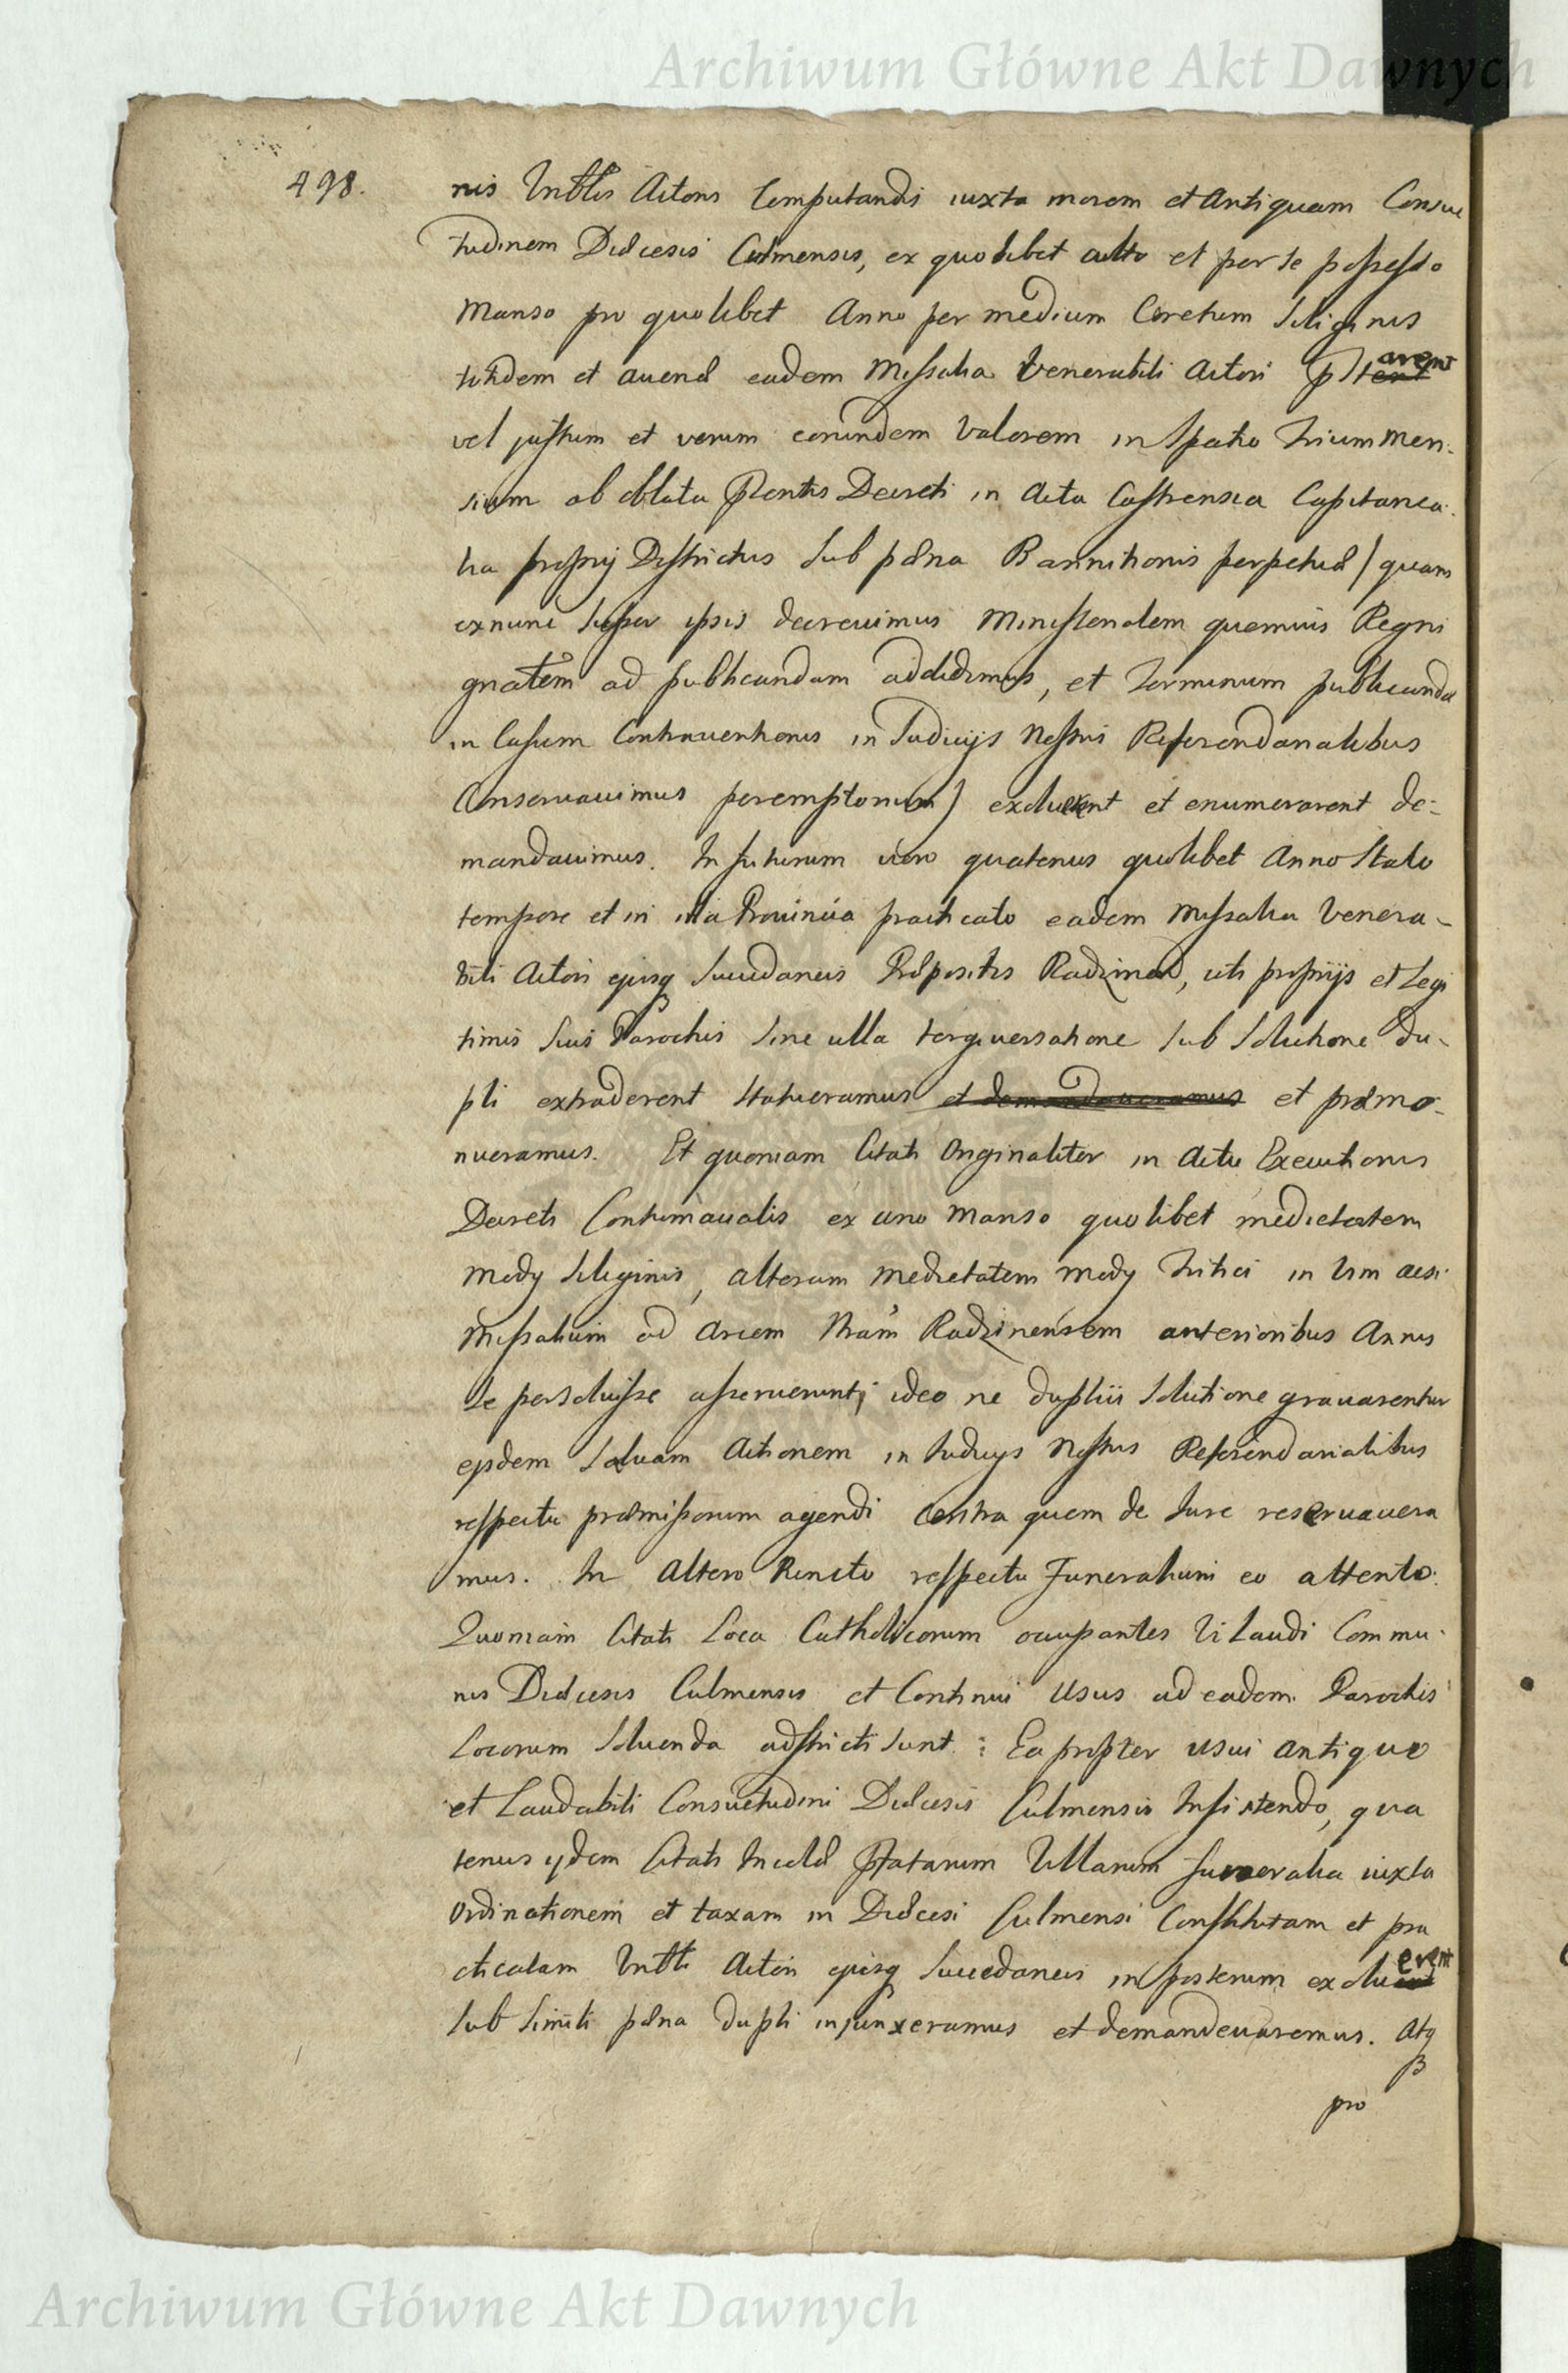 Archiwum Główne Akt Dawnych
498.
nis Vnbłis Actoris Computandis iuxta morem et Antiquam Consue
tudinem Diæcesis Culmensis, ex quolibet culto et per se possesso
Manso pro quolibet Anno per medium Coretum Siliginis
totidem et auenæ eadem Missalia Venerabili Actori pstent arent
vel justum et verum eorundem Valorem in Spatio Trium Men-
sium ab oblata Pśentis Decreti in Acta Castrensia Capitanea-
lia proprij Districtus Sub pæna Bannitionis perpetuæ / quam
exnunc Super ipsis decreuimus Ministerialem quemuis Regni
gnałem ad publicandam addidimus, et Terminum publicandæ
in Casum Contrauentionis in Judicijs Nostris Referendarialibus
Conseruauimus peremptorium) exoluerent et enumerarent de-
mandauimus. In futurum vero quatenus quolibet Anno Stato
tempore et in illa Prouincia practicato eadem Missalia Venera-
bili Actori ejusq Succedaneis Præpositis Radzinen, uti proprijs et Legi
timis Suis Parochis Sine ulla tergiuersatione Sub Solutione du-
pli extraderent Statueramus et demandaueramus et præmo-
nueramus. Et quoniam Citati Originaliter in Actu Executionis
Decreti Contumacialis ex uno Manso quolibet medietatem
Mody Siliginis, alteram medietatem Mody Tritici in Vim
Missalium ad Arcem Nram Radzinensem anterioribus Annis
Se persoluisse asseruerunt; ideo ne duplici Solutione grauarentur
ejsdem Saluam Actionem in Judicijs Nostris Referendarialibus
respectu præmissorum agendi Contra quem de Jure reseruauera
mus. In Altero Puncto respectu Funeralium eo attento:
Quoniam Citati Loca Catholicorum occupantes Vi Laudi Commu-
nis Diæcesis Culmensis et Continui Usus ad eadem Parochis
Locorum Soluenda adstricti Sunt: Ea propter usui antiquo
et Laudabili Consuetudini Diæcesis Culmensis Insistendo, qua
tenus ijdem Citati Incolæ Pstatarum Villarum Funeralia iuxta
Ordinationem et taxam in Diæcesi Culmensi Constitutam et pra
cticatam Vnbłi Actori ejusq Succedaneis in posterum exoluant erent
Sub Simili pæna dupli injunxeramus et demandeuaremus. Atq
pro
Archiwum Główne Akt Dawnych